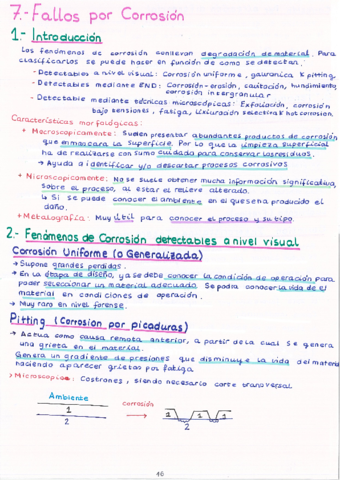 7.- Fallos por Corrosión
1.- Introducción
Los fenómenos de corrosión conllevan degradación de material. Para
clasificarlos se puede hacer en función de como se detectan:
- Detectables a nivel visual: Corrosión uniforme, galvanica y pitting.
- Detectables mediante END: Corrosión-erosión, cavitación, hundimiento,
corrosión intergranular
- Detectable mediante técnicas microscópicas: Exfoliación, corrosión
bajo tensiones, fatiga, lixiviación selectiva y hot corrosion.
Características morfológicas:
+ Macroscopicamente: Suelen presentar abundantes productos de corrosión
que enmascara la superficie. Por lo que la limpieza superficial
ha de realizarse con sumo cuidado para conservar los residuos.
→ Ayuda a identificar y/o descartar procesos corrosivos
+ Microscopicamente: No se suele obtener mucha información significativa
sobre el proceso, al estar el relieve alterado.
↳ Si se puede conocer el ambiente en el que se ha producido el
daño.
+ Metalografía: Muy útil para conocer el proceso y su tipo.
2.- Fenómenos de Corrosión detectables a nivel visual
Corrosión Uniforme (o Generalizada)
→ Supone grandes perdidas.
→ En la etapa de diseño, ya se debe conocer la condición de operación para
poder seleccionar un material adecuado. Se podra conocer la vida de el
material en condiciones de operación.
→ Muy raro en nivel forense.
Pitting (Corrosión por picaduras)
→ Actua como causa remota anterior, a partir de la cual se genera
una grieta en el material.
Genera un gradiente de presiones que disminuye la vida del material
haciendo aparecer grietas por fatiga
> Microscopio: Costrones, siendo necesario corte transversal
Ambiente
corrosión
1
2
1
2
46